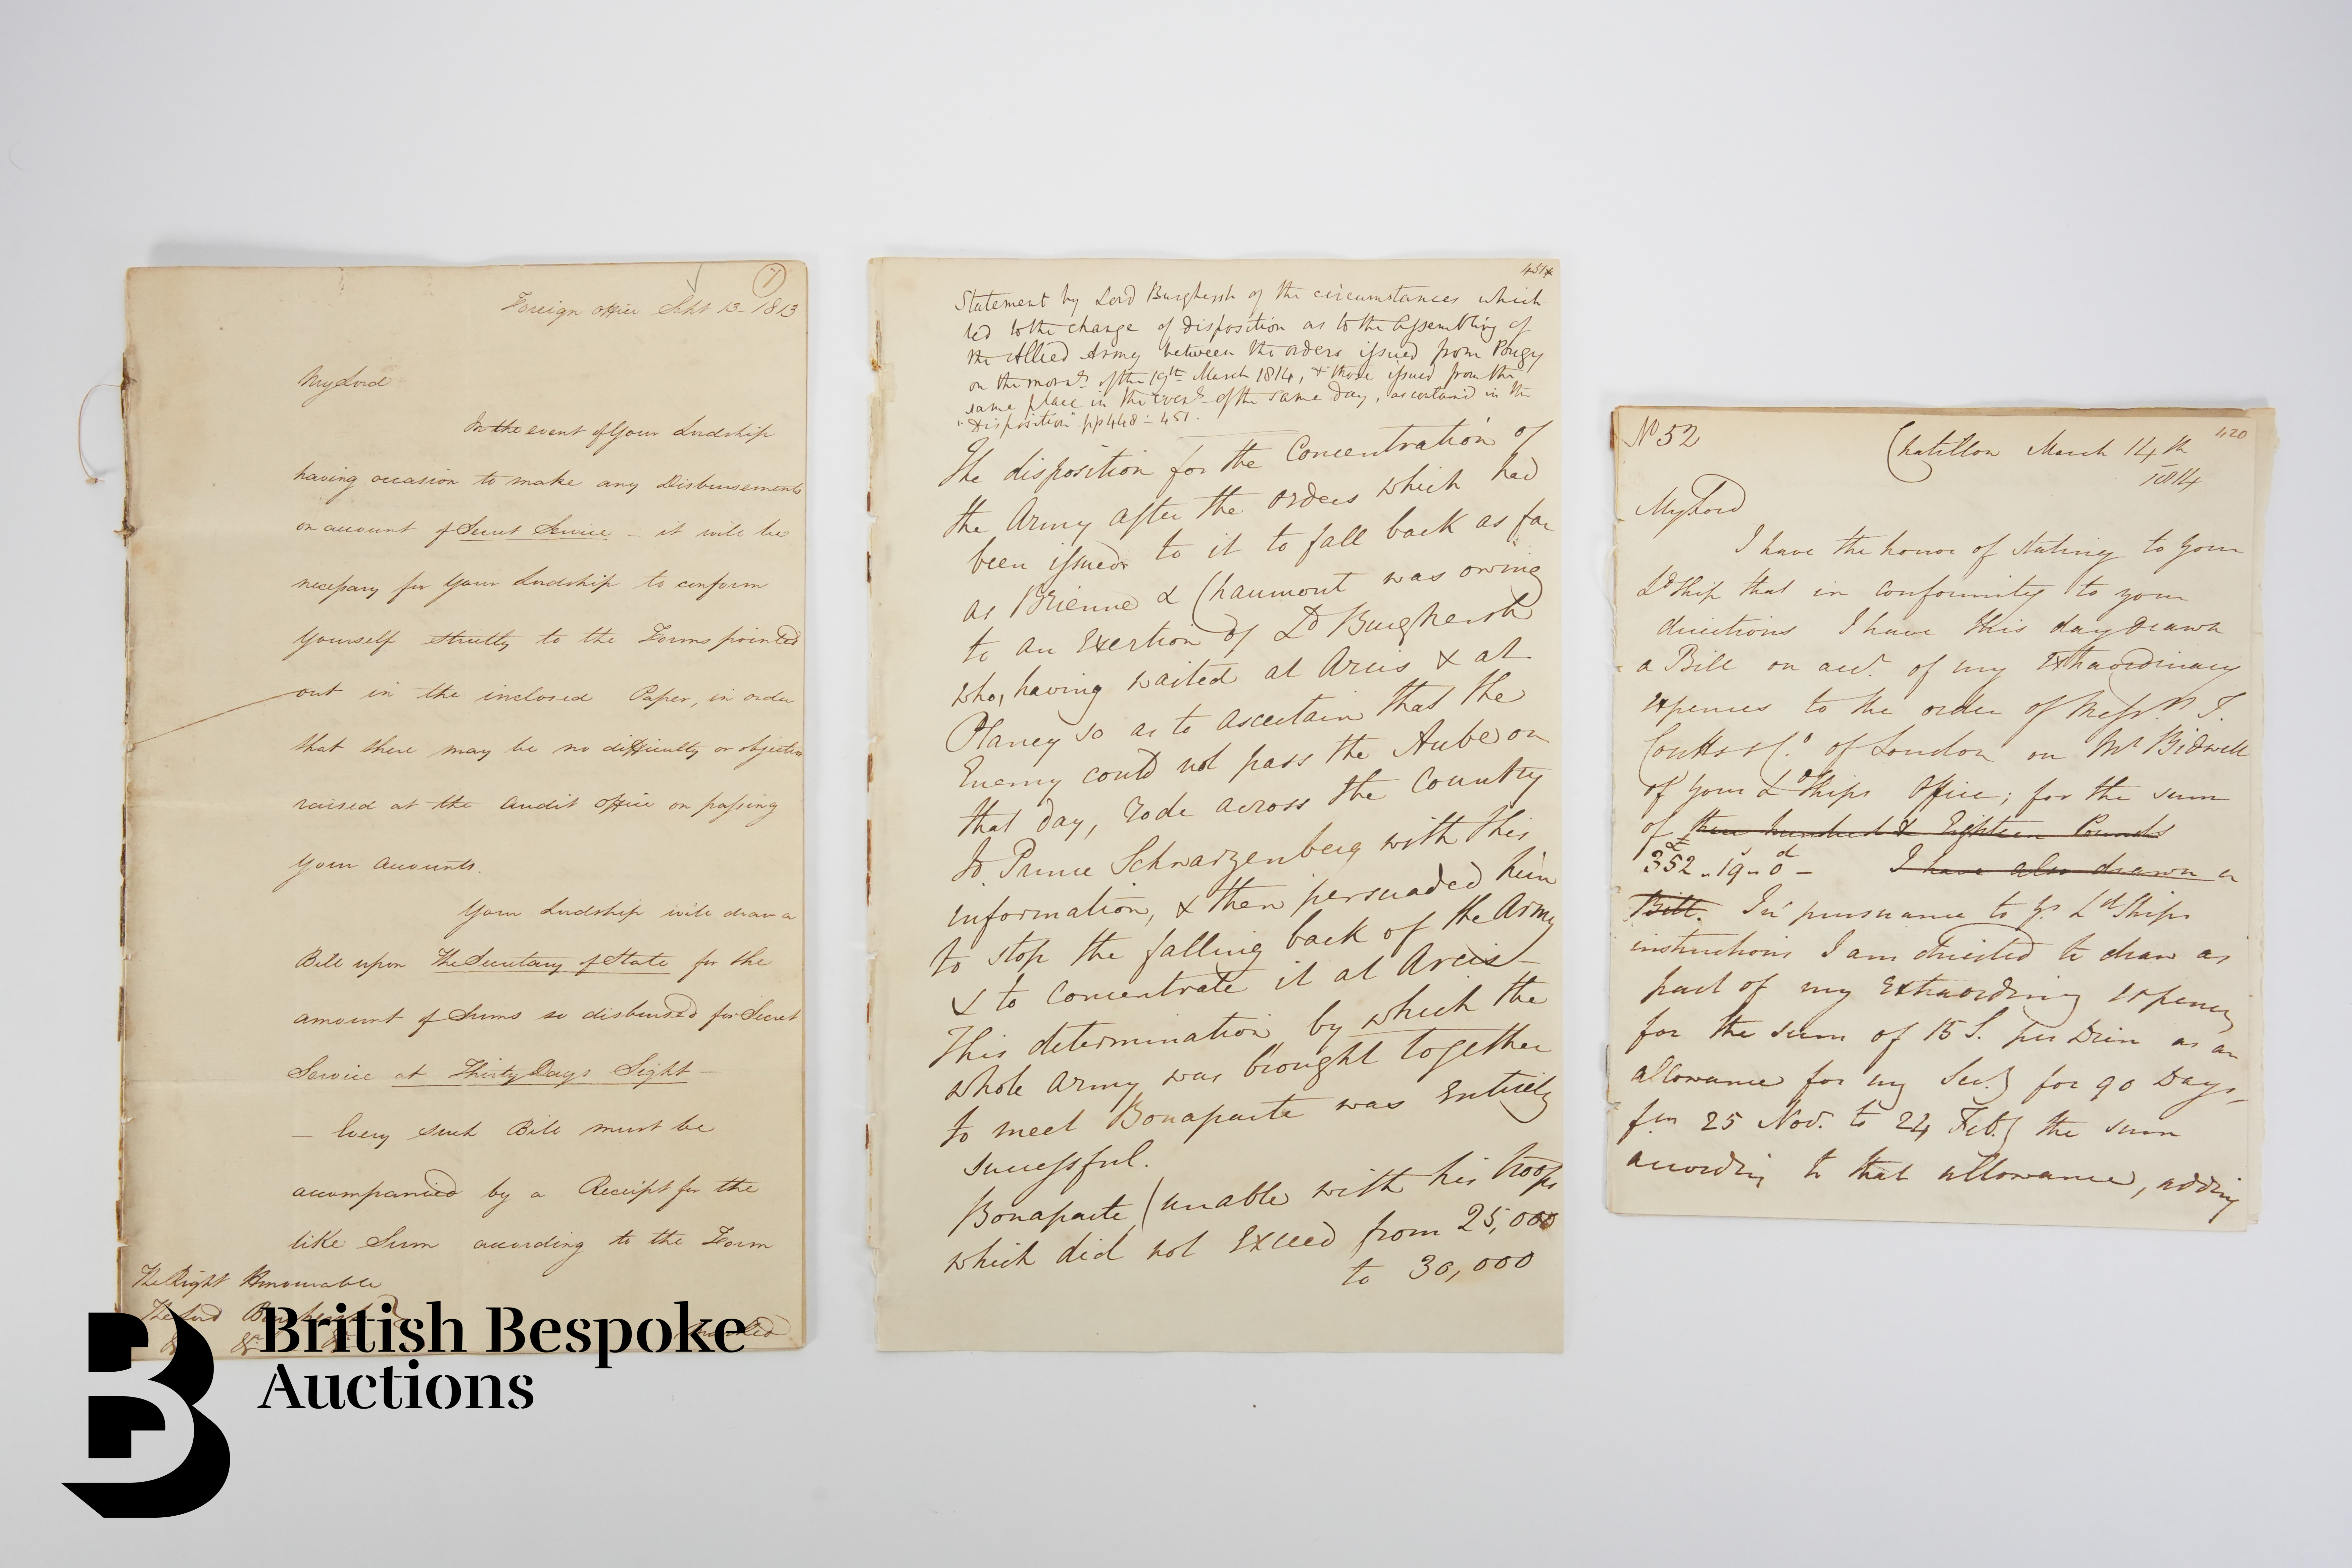 Foreign Office Sept 13 - 1813
My Lord
In the event of Your Lordship
having occasion to make any Disbursements
on account of Secret Service - it will be
necessary for Your Lordship to conform
Yourself strictly to the Forms pointed
out in the inclosed Paper, in order
that there may be no difficulty or objection
raised at the Audit Office on passing
Your Accounts.
Your Lordship will draw a
Bill upon The Secretary of State for the
amount of Sums so disbursed for Secret
Service at Thirty Days Sight -
- Every such Bill must be
accompanied by a Receipt for the
like Sum according to the Form
The Right Honourable
The Lord
&c &c &c
451x
Statement by Lord Burghersh of the circumstances which
led to the change of disposition as to the Assembling of
the Allied Army between the orders issued from Pougy
on the morng of the 19th March 1814, & those issued from the
same place in the Eveng of the same day, as contained in the
"Disposition" pp 448 - 451.
The disposition for the Concentration of
the Army after the orders which had
been issued to it to fall back as far
as Brienne & Chaumont was owing
to an Exertion of Ld Burghersh
who, having waited at Arcis & at
Plancy so as to ascertain that the
Enemy could not pass the Aube on
that day, rode across the Country
to Prince Schwarzenberg with this
information, & then persuaded him
to stop the falling back of the Army
& to concentrate it at Arcis -
This determination by which the
whole Army was brought together
to meet Bonaparte was Entirely
successful.
Bonaparte (unable with his troops
which did not Exceed from 25,000
to 30,000
No 52
420
Chatillon March 14th
1814
My Lord
I have the honor of stating to your
Ldship that in conformity to your
directions I have this day drawn
a Bill on acct. of my Extraordinary
expences to the order of Messrs T.
Coutts & Co. of London on Mr Bidwell
of your Ldships Office; for the sum
of three hundred & Eighteen Pounds
£352 - 19s - 0d - I have also drawn a
Bill. In pursuance to yr Ldships
instructions I am directed to draw as
part of my Extraordinary expences
for the sum of 15 S. per Diem as an
allowance for my Secy for 90 Days,
fm 25 Nov. to 24 Feby the sum
according to that allowance, adding
British Bespoke
Auctions